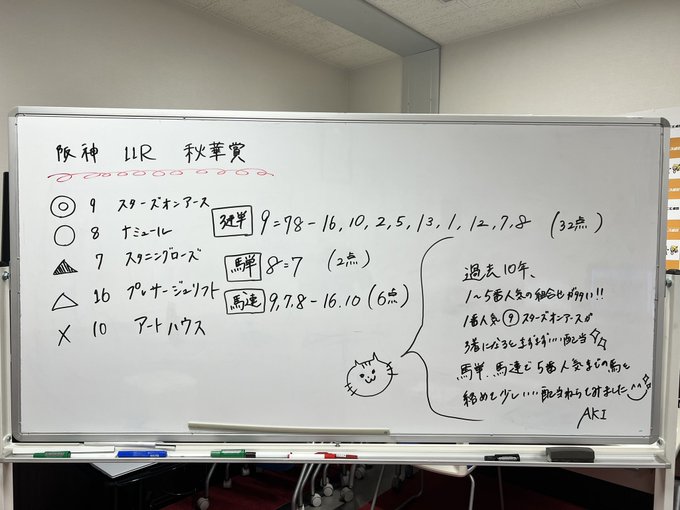 阪神 11R 秋華賞
◎ 9 スターズオンアース
○ 8 ナミュール
▲ 7 スタニングローズ
△ 16 プレサージュリフト
X 10 アートハウス
3連単 9=78-16,10,2,5,13,1,12,7,8 (32点)
馬単 8=7 (2点)
馬連 9,7,8-16.10 (6点)
過去10年、
1〜5番人気の組合せが多い!!
1番人気⑨スターズオンアースが
3着になるとまずまず…配当
馬単、馬連で5番人気までの馬を
絡めて少しいい配当ねらってみました^^
AKI